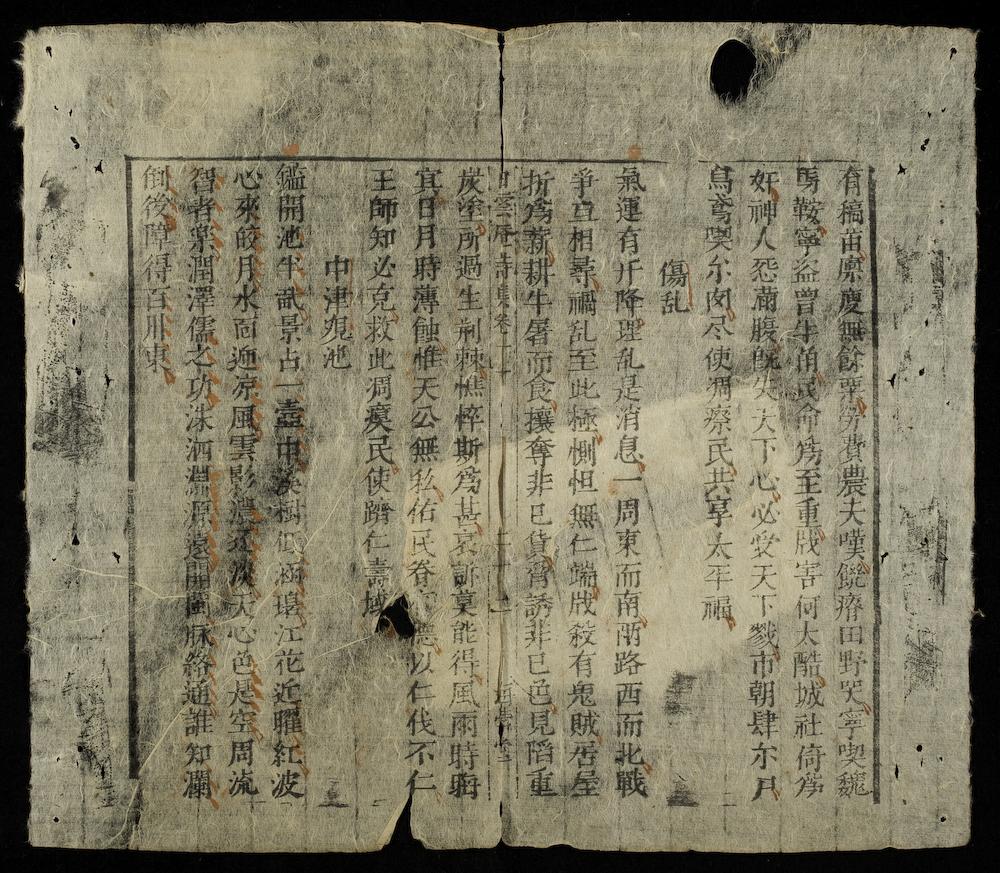 有稿苗廩庾無餘粟労費農夫嘆饑瘠田野哭寧喫魏
馬鞍寧盜曾牛角民命為至重戕害何太酷城社倚為
奸神人怨滿腹既失天下心必受天下戮市朝肆尔尸
烏鳶喫尔肉尽使凋瘵民共享太平福
傷乱
氣運有升降理乱是消息一周東而南兩路西而北戰
爭互相尋禍乱至此極惻怛無仁端戕殺有鬼賊居屋
折為薪耕牛屠而食攘奪非己貨脅誘非己色見陷重
雲庵詩集卷
炭塗所過生荊棘憔悴斯為甚哀訴莫能得風雨時晦
宜日月時薄蝕惟天公無私佑民眷德以仁伐不仁
王師知必克救此凋瘼民使躋仁壽域
中津観池
鑑開池半畝景占一壺中樹低涵碧江花近曜紅波
心來皎月水面迎凉風雲影濃还淡天心色是空周流
智者楽潤澤儒之功洙泗淵源遠關閩脉絡通誰知瀾
倒後障得百川東